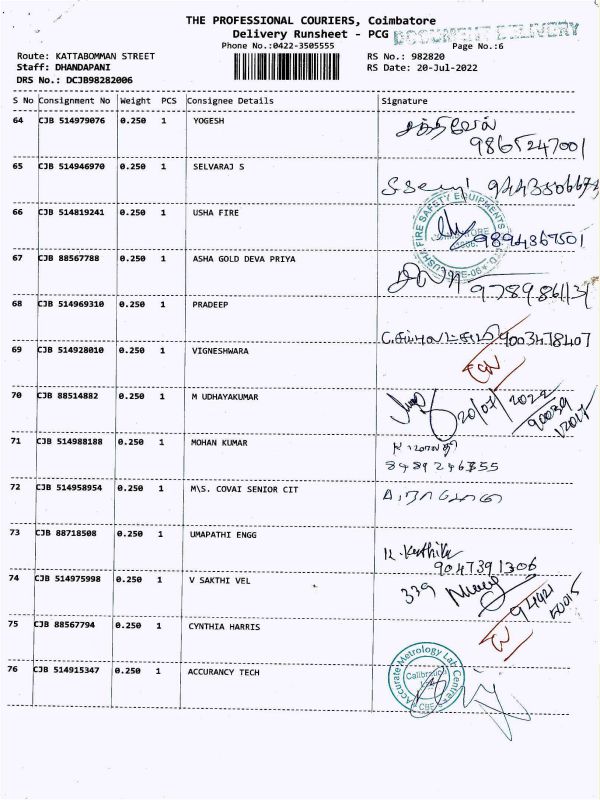 THE PROFESSIONAL COURIERS, Coimbatore
Delivery Runsheet - PCG
DOCUMENT DELIVERY
Phone No.:0422-3505555
Page No.:6
Route: KATTABOMMAN STREET
RS No.: 982820
Staff: DHANDAPANI
RS Date: 20-Jul-2022
DRS No.: DCJB98282006
S No Consignment No Weight PCS Consignee Details Signature
64 CJB 514979076 0.250 1 YOGESH
சக்திவேல்
9865247001
65 CJB 514946970 0.250 1 SELVARAJ S
66 CJB 514819241 0.250 1 USHA FIRE
USHA FIRE SAFETY EQUIPMENTS
9894367501
67 CJB 88567788 0.250 1 ASHA GOLD DEVA PRIYA
68 CJB 514969310 0.250 1 PRADEEP
9003478407
69 CJB 514928010 0.250 1 VIGNESHWARA
70 CJB 88514882 0.250 1 M UDHAYAKUMAR
20/07/2022
71 CJB 514988188 0.250 1 MOHAN KUMAR
72 CJB 514958954 0.250 1 M\S. COVAI SENIOR CIT
73 CJB 88718508 0.250 1 UMAPATHI ENGG
K. Karthika
9047391306
74 CJB 514975998 0.250 1 V SAKTHI VEL
339
75 CJB 88567794 0.250 1 CYNTHIA HARRIS
76 CJB 514915347 0.250 1 ACCURANCY TECH
Accurate Metrology Lab Centre
CBE